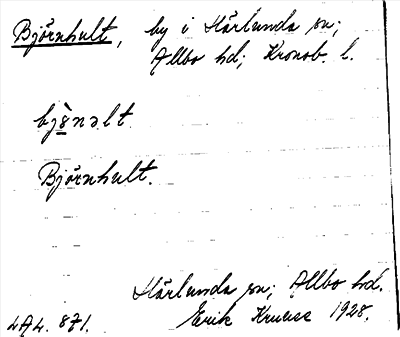 Björnhult, by i Härlunda sn;
Allbo hd; Kronob. l.
bjö̀nəlt
Björnhult.
Härlunda sn; Allbo hd.
Erik Kruuse 1928.